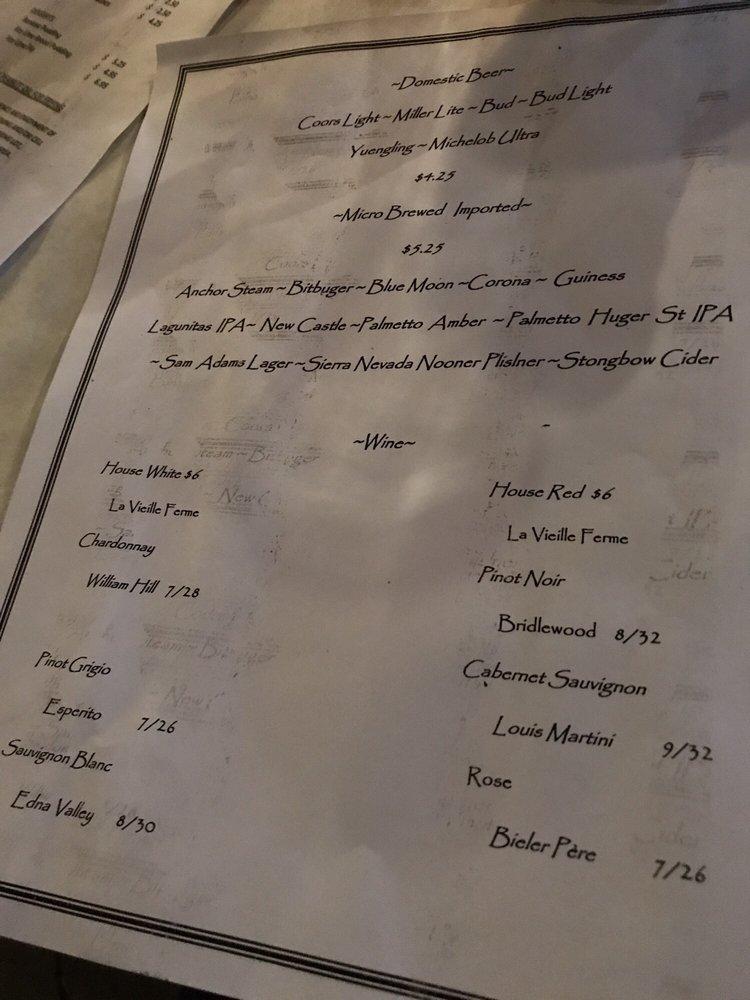 ~Domestic Beer~
Coors Light ~ Miller Lite ~ Bud ~ Bud Light
Yuengling ~ Michelob Ultra
$4.25
~Micro Brewed Imported~
$5.25
Anchor Steam ~ Bitbuger ~ Blue Moon ~Corona ~ Guiness
Lagunitas IPA~ New Castle ~Palmetto Amber ~ Palmetto Huger St IPA
~Sam Adams Lager ~Sierra Nevada Nooner Plislner ~Stongbow Cider
~Wine~
House White $6
La Vieille Ferme
Chardonnay
William Hill 7/28
Pinot Grigio
Esperito 7/26
Sauvignon Blanc
Edna Valley 8/30
House Red $6
La Vieille Ferme
Pinot Noir
Bridlewood 8/32
Cabernet Sauvignon
Louis Martini 9/32
Rose
Bieler Père 7/26